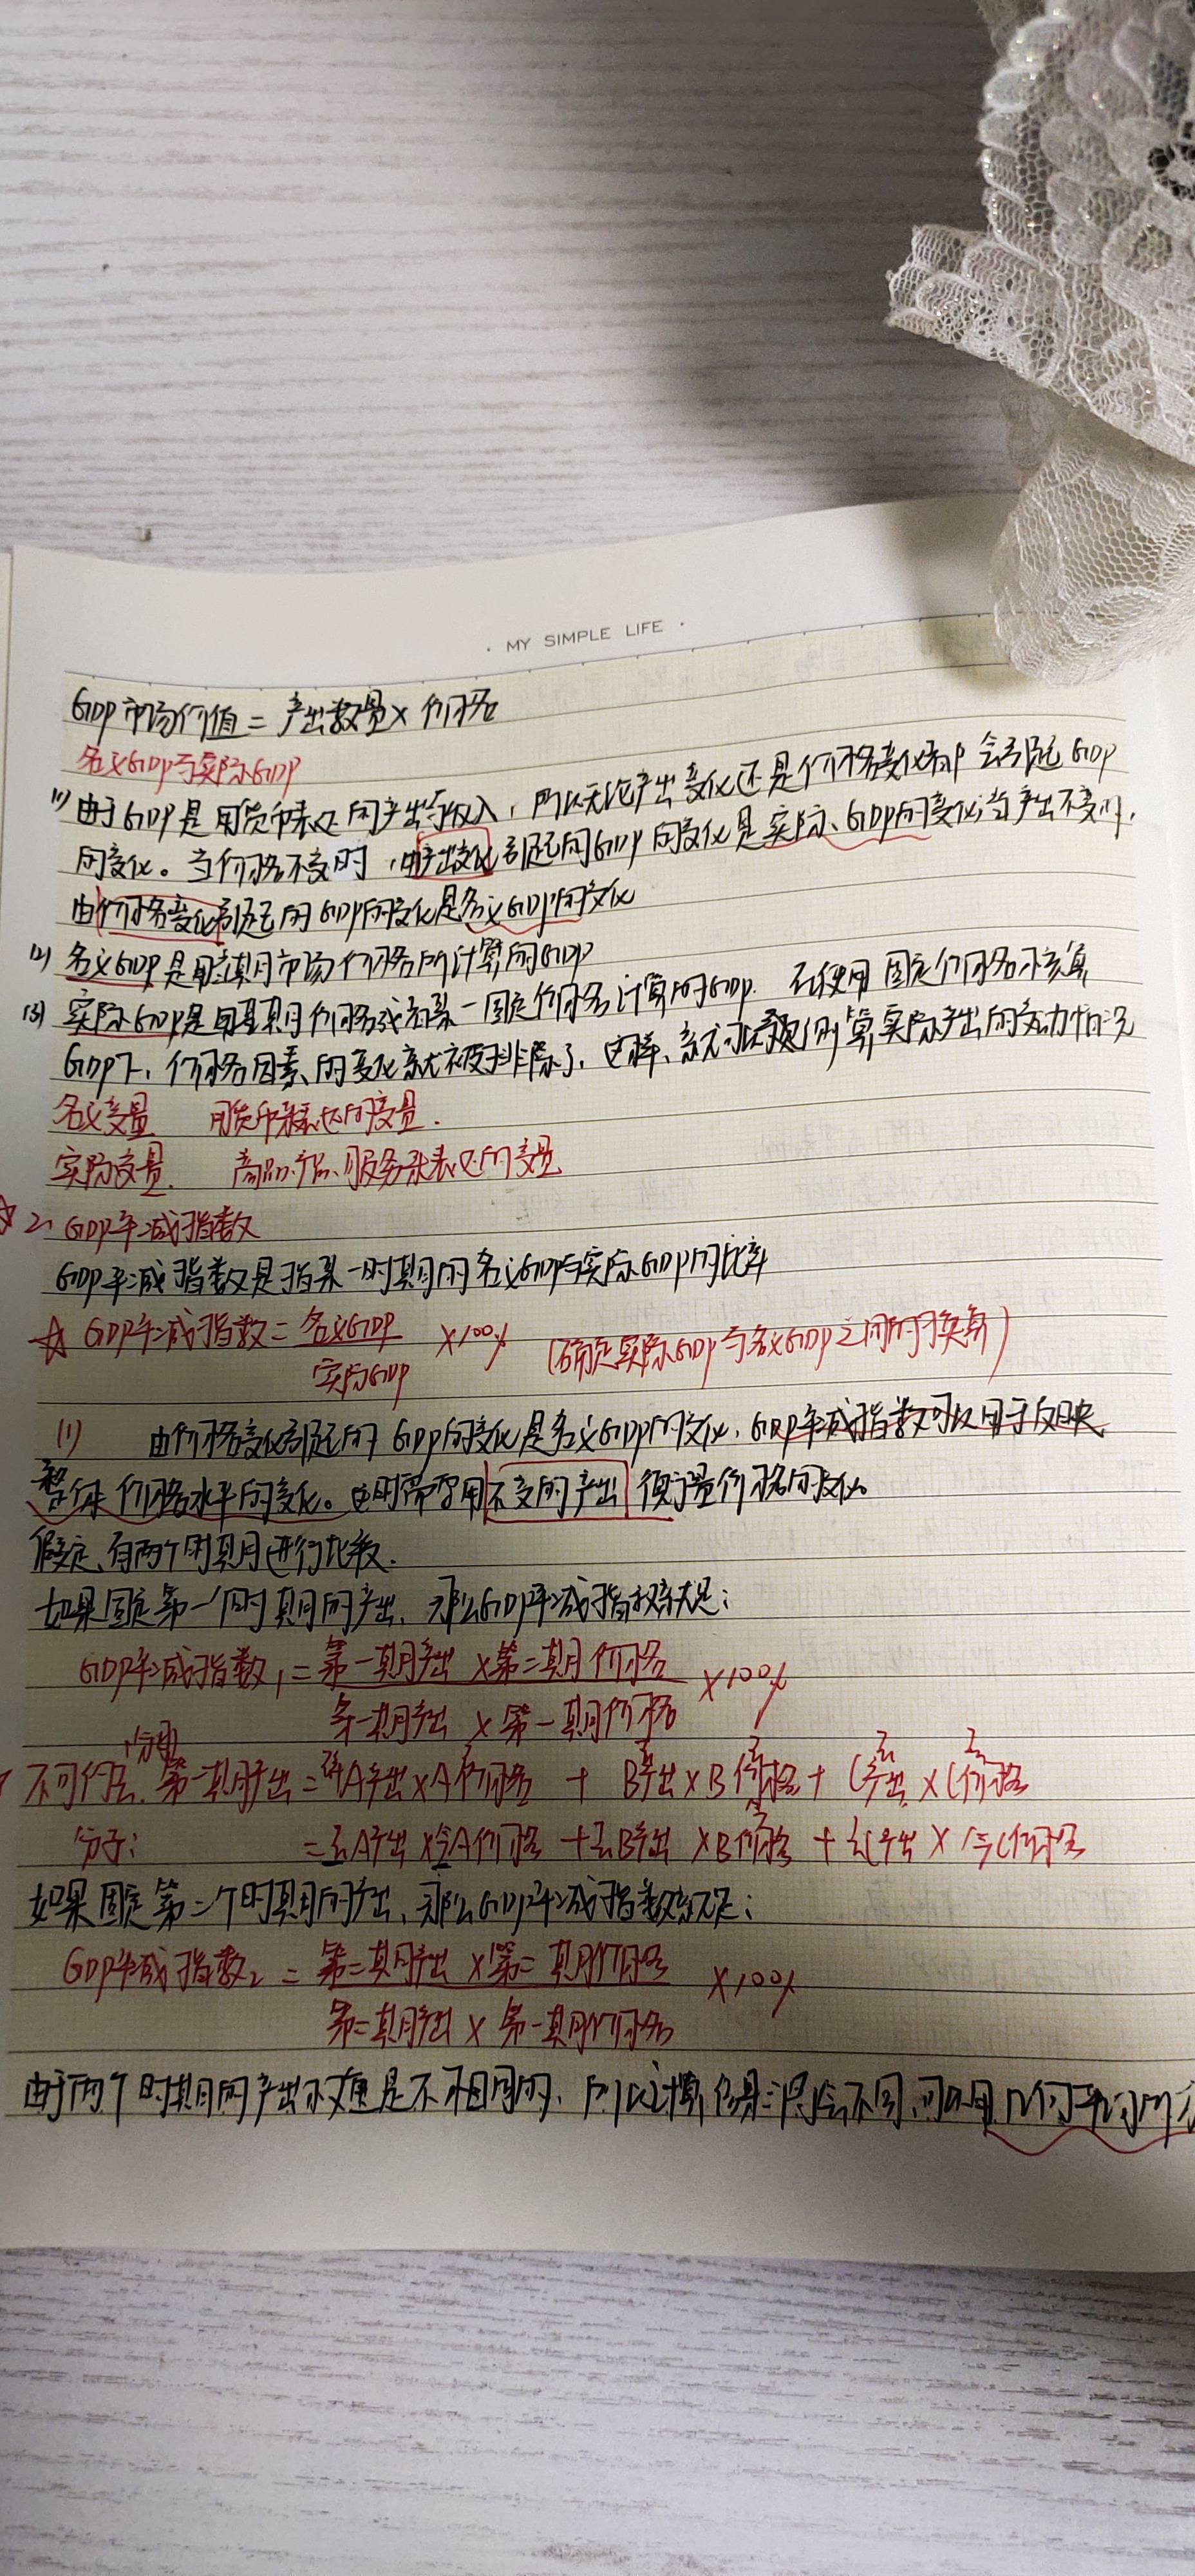 · MY SIMPLE LIFE ·
GDP市场价值 = 产出数量 × 价格
名义GDP与实际GDP
(1) 由于GDP是用货币来表达的产出与收入，所以无论产出变化还是价格变化都会引起GDP
的变化。当价格不变时，由产出变化引起的GDP的变化是实际GDP的变化；当产出不变时，
由价格变化引起的GDP的变化是名义GDP的变化
(2) 名义GDP是用当期市场价格所计算的GDP
(3) 实际GDP是用基期价格或者某一固定价格计算的GDP. 在使用固定价格核算
GDP下, 价格因素的变化就被排除了. 这样, 就可以 算实际产出的变动情况
名义变量 用货币来表达的变量.
实际变量. 商品、产品、服务来表达的变量
☆ 2、GDP平减指数
GDP平减指数是指某一时期的名义GDP与实际GDP的比率
☆ GDP平减指数 = 名义GDP / 实际GDP ×100% (确定实际GDP与名义GDP之间的换算)
(1) 由价格变化引起的GDP的变化是名义GDP的变化, GDP平减指数可以用于反映
整体价格水平的变化。这时需要用不变的产出 衡量价格的变化。
假定, 有两个时期进行比较.
如果固定第一个时期的产出, 那么GDP平减指数就是:
GDP平减指数₁ = 第一期产出 × 第二期价格 ×100%
第一期产出 × 第一期价格
不可 分母 第一期产出 = A产出×A价格 + B产出×B价格 + C产出×C价格
分子: = A产出×A价格 + B产出×B价格 + C产出×C价格
如果固定第二个时期的产出, 那么GDP平减指数就是:
GDP平减指数₂ = 第二期产出 × 第二期价格 ×100%
第二期产出 × 第一期价格
由于两个时期的产出 是不相同的, 所以计算 会不同, 可以用几何平均的方